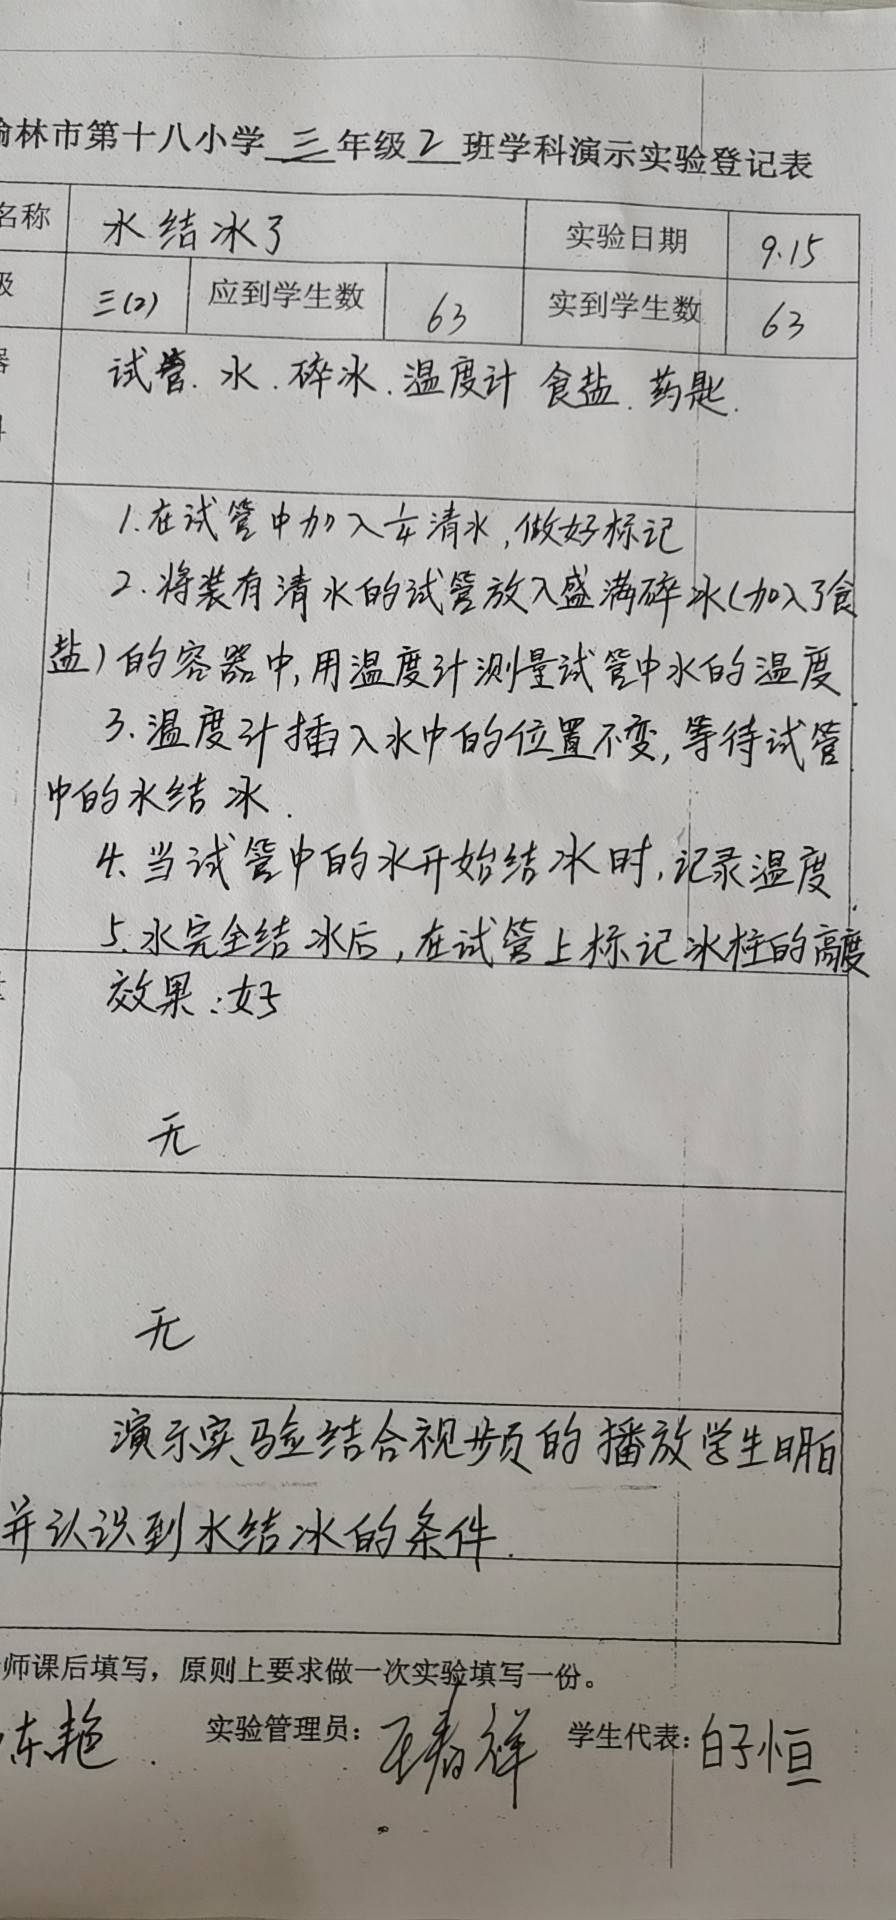 榆林市第十八小学 三 年级 2 班学科演示实验登记表
名称 水结冰了 实验日期 9.15
级 三(2) 应到学生数 63 实到学生数 63
器 试管. 水. 碎冰. 温度计 食盐. 药匙.
1.在试管中加入1/4清水,做好标记
2.将装有清水的试管放入盛满碎冰(加入了食
盐)的容器中,用温度计测量试管中水的温度
3.温度计插入水中的位置不变,等待试管
中的水结冰.
4.当试管中的水开始结冰时,记录温度
5.水完全结冰后,在试管上标记冰柱的高度
效果:好
无
无
演示实验结合视频的播放学生明白
并认识到水结冰的条件.
师课后填写，原则上要求做一次实验填写一份。
东艳 实验管理员: 王春祥 学生代表: 白子恒